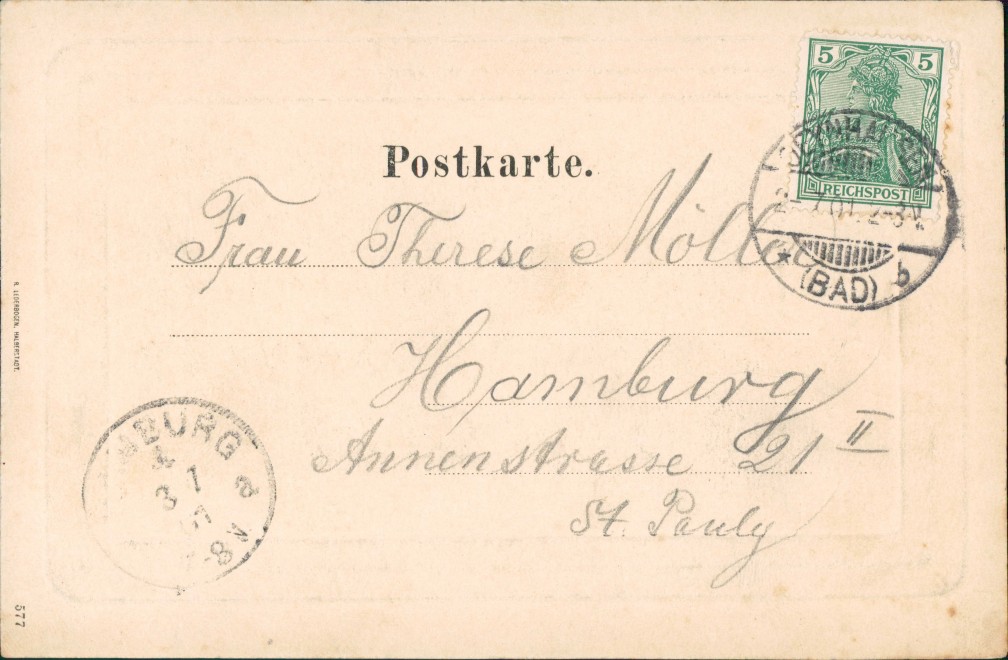 5 5
REICHSPOST
OEYNHAUSEN
2 - 7 01. 2-3N.
* (BAD) b
Postkarte.
Frau Therese Möll
Hamburg
Annenstrasse 21 II
St. Pauly
BURG
a
3 7
-8 V
R. LEDERBOGEN, HALBERSTADT.
577